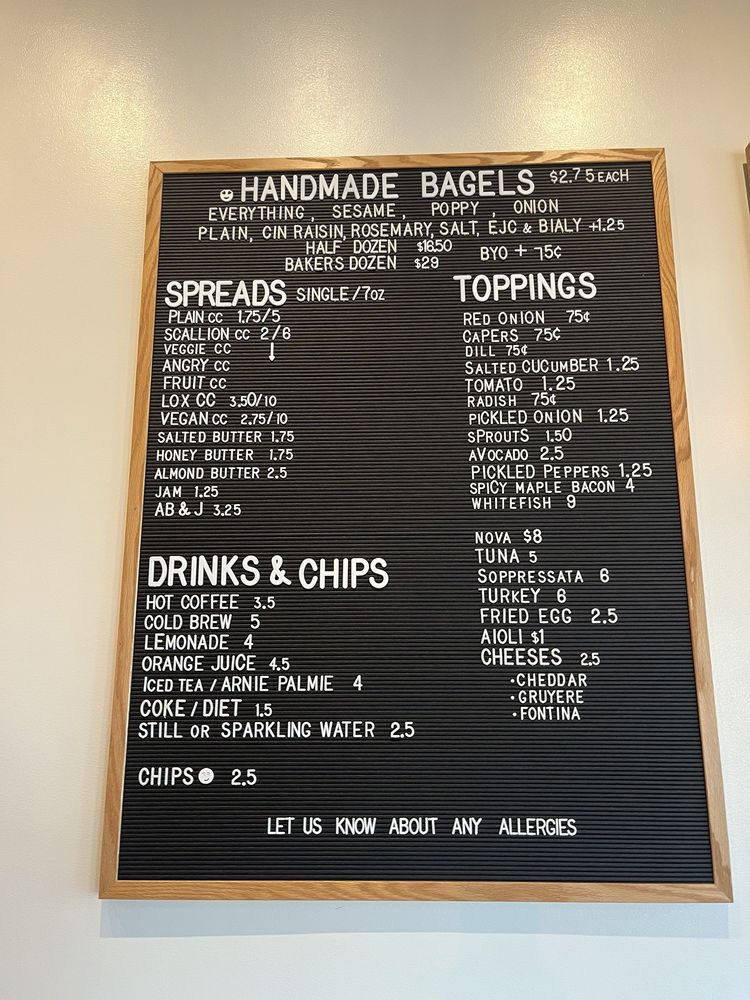 HANDMADE BAGELS $2.75 EACH
EVERYTHING, SESAME, POPPY, ONION
PLAIN, CIN RAISIN, ROSEMARY, SALT, EJC & BIALY +1.25
HALF DOZEN $16.50
BAKERS DOZEN $29
BYO + 75¢
SPREADS SINGLE/7OZ
PLAIN CC 1.75/5
SCALLION CC 2/6
VEGGIE CC ↓
ANGRY CC
FRUIT CC
LOX CC 3.50/10
VEGAN CC 2.75/10
SALTED BUTTER 1.75
HONEY BUTTER 1.75
ALMOND BUTTER 2.5
JAM 1.25
AB & J 3.25
DRINKS & CHIPS
HOT COFFEE 3.5
COLD BREW 5
LEMONADE 4
ORANGE JUICE 4.5
ICED TEA / ARNIE PALMIE 4
COKE / DIET 1.5
STILL OR SPARKLING WATER 2.5
CHIPS 2.5
TOPPINGS
RED ONION 75¢
CAPERS 75¢
DILL 75¢
SALTED CUCUMBER 1.25
TOMATO 1.25
RADISH 75¢
PICKLED ONION 1.25
SPROUTS 1.50
AVOCADO 2.5
PICKLED PEPPERS 1.25
SPICY MAPLE BACON 4
WHITEFISH 9
NOVA $8
TUNA 5
SOPPRESSATA 6
TURKEY 6
FRIED EGG 2.5
AIOLI $1
CHEESES 2.5
•CHEDDAR
•GRUYERE
•FONTINA
LET US KNOW ABOUT ANY ALLERGIES